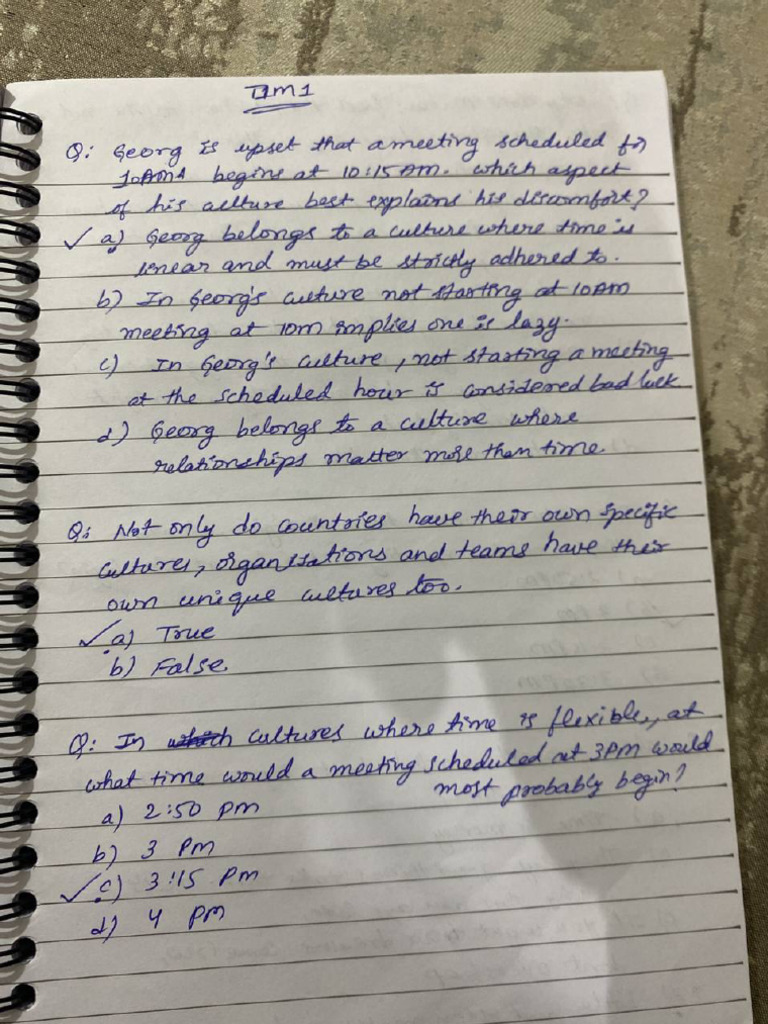 Q: Georg is upset that a meeting scheduled for
10AM begins at 10:15 AM. which aspect
of his culture best explains his discomfort?
✓ a) Georg belongs to a culture where time is
linear and must be strictly adhered to.
b) In Georg's culture not starting at 10AM
meeting at 10m implies one is lazy.
c) In Georg's culture, not starting a meeting
at the scheduled hour is considered bad luck
d) Georg belongs to a culture where
relationships matter more than time.
Q: Not only do countries have their own specific
cultures, organizations and teams have their
own unique cultures too.
✓ a) True
b) False.
Q: In cultures where time is flexible, at
what time would a meeting scheduled at 3PM would
most probably begin?
a) 2:50 pm
b) 3 pm
✓ c) 3:15 pm
d) 4 pm